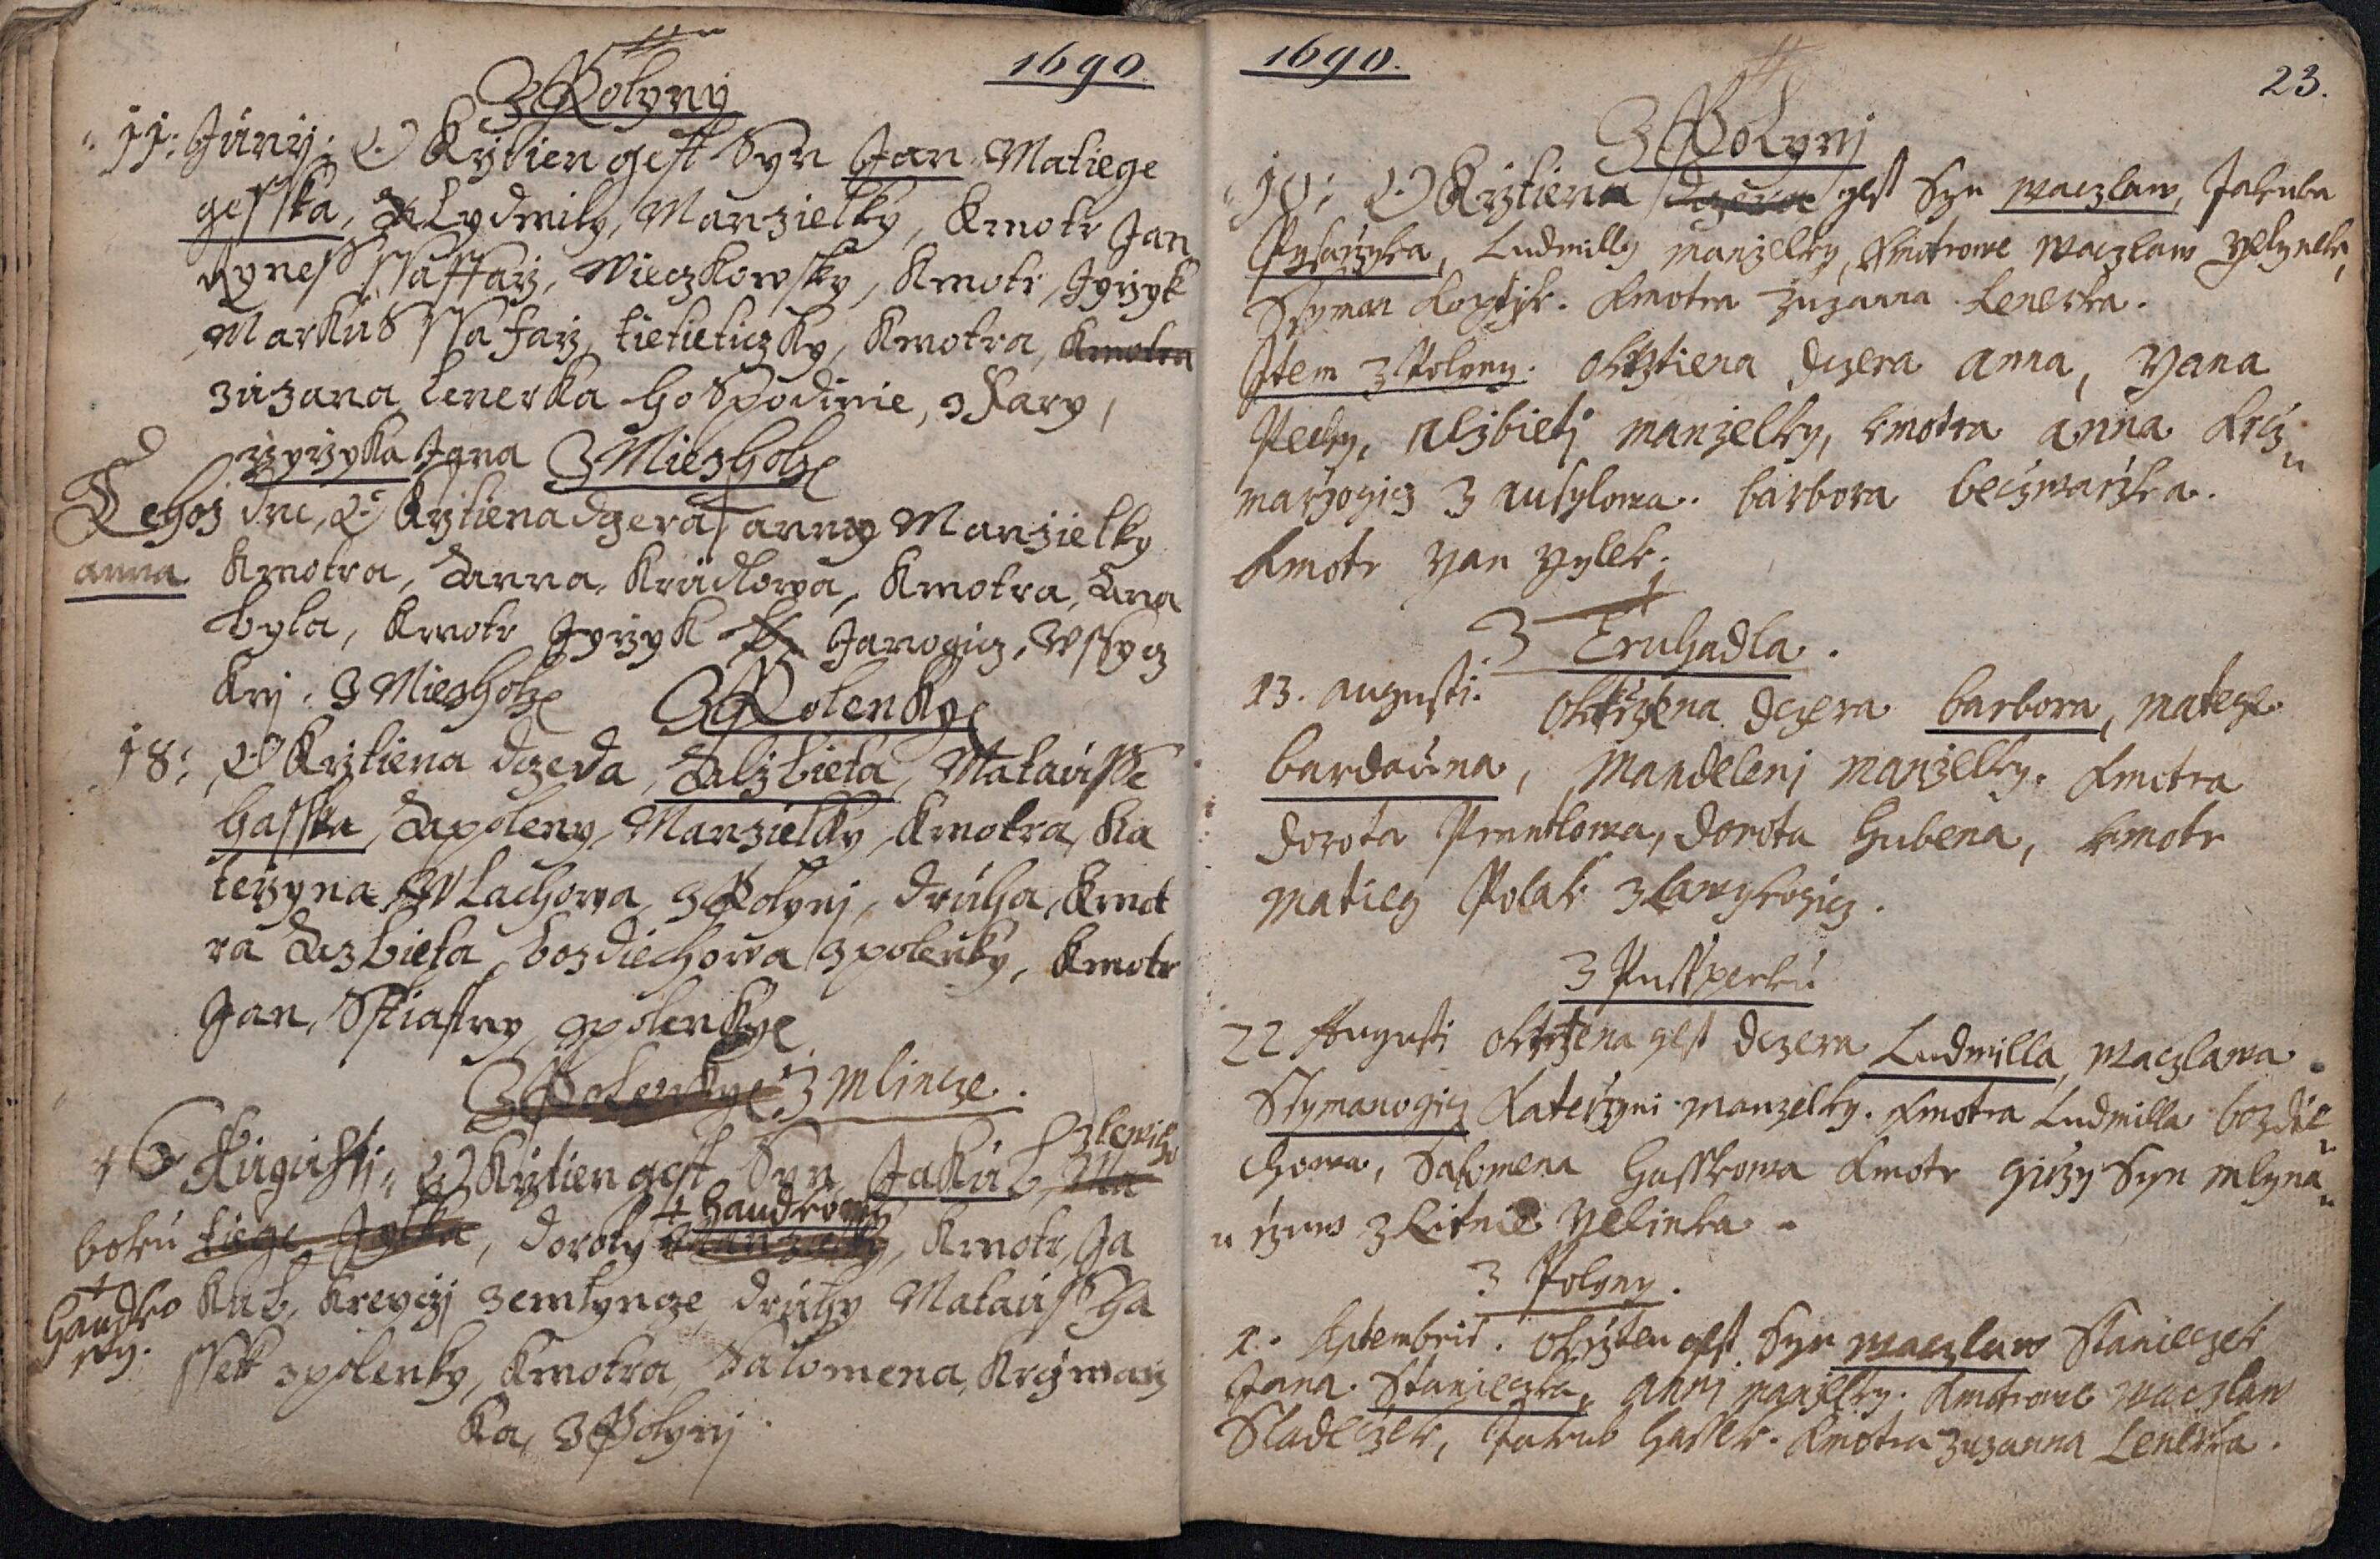 1690
Z Polyny
11. Juny: Okrztien gest Syn Jan Matiege
gesska, Lydmily, Manzielky, Kmotr Jan
Ryness ssaffarz, Wieczkowsky, Kmotr, Gyrzyk
Markus ssafarz, tietieticzky, Kmotra, Kmotra
zuzana lenerka hospodinie, z Fary,
rzyrzyka Jana Z Miezholz
Tehoz dne, Okrztiena dczera anny Manzielky
anna Kmotra, Anna, Kradlowa, Kmotra, Ana
byla, Kmotr Gyrzyk Janogicz, Wssycz
kny. Z Miezholz Z Polenky
18: Okrztiena dczera, Alzbieta, Matausse
hasska, Apoleny, Manzielky, Kmotra, Ka
terzyna Wlachowa, z Polynj, druha, Kmot
ra Azbieta bozdiechowa z polenky, Kmotr
Jan, Sstiastny, z polenky
Z Polenky. z mlincze.
6 Augustj. Okrztien gest Syn, Jakub, Ma
boku tiege Jylka, doroty + haudkowy Manzielky, Kmotr, Ja
+ haudko wy. kub, kreyczj zemlyncze, druhy Matauss Ha
ssek z polenky, Kmotra, Salomena, krczmarz
ka, Z Polynj
1690.
23.
Z Polynj
10: Okrztiena dczera gest Syn waczlaw, Jakuba
Pysarzyka, Ludmilly manzelky, Kmotrowe waczlaw yelynek,
Ssyman Koptyk. Kmotra zuzanna Lenerka.
Item z Polyny. Okrztiena dczera anna, Yana
Pechy, Alzbietj manzelky, kmotra anna krcz
marzogicz z ausylowa. barbora beczwarzka.
Kmotr Yan yylek.
Z Czuhadla.
13. augusti. Okrzztena dczera barbora, mategе
bardauna, Mandelenj manzelky. Kmotra
dorota Prantlowa, dorota Hubena, kmotr
matieg Polak z lawykogicz.
z Pussperku
22 Augusti okrztena gest dczera Ludmilla, waczlawa
Ssymanogicz Katerzyni manzelky. Kmotra Ludmilla bozdie
chowa, Salomena Hasskowa Kmotr girzy Syn mlyna
rzuw z Litnie yelinka.
z Polyny.
1. Septembris. Okrzten gest Syn waczlaw Stanieczek
Jana Stanieczka, annj manzelky. Kmotrowe waczlaw
Sladeczek, Jakub hassek. Kmotra zuzanna Lenerka.